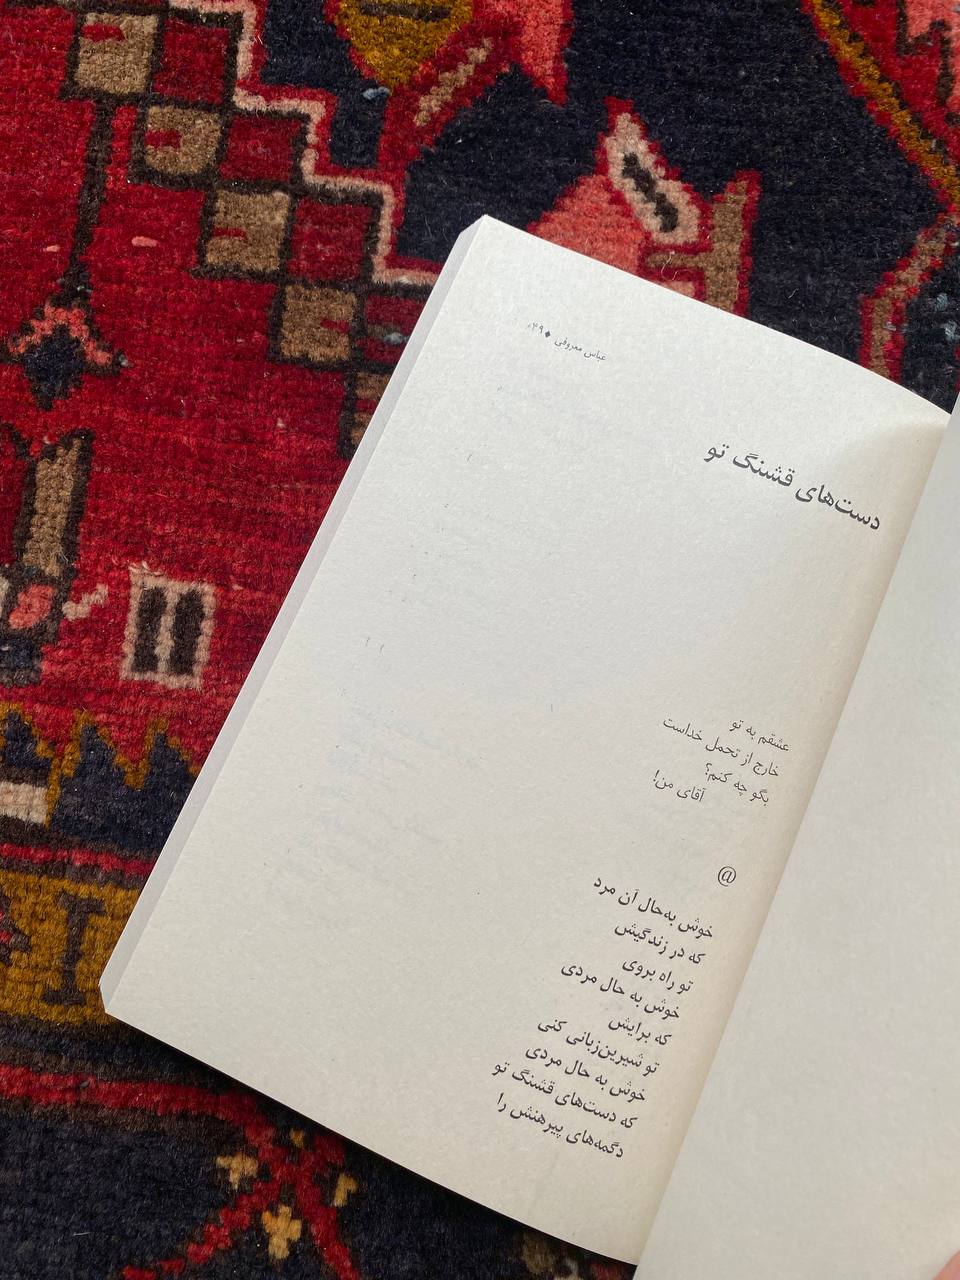 عباس معروفی ♦ ۴۹
دست‌های قشنگ تو
عشقم به تو
خارج از تحمل خداست
بگو چه کنم؟
آقای من!
@
خوش به‌حال آن مرد
که در زندگیش
تو راه بروی
خوش به حال مردی
که برایش
تو شیرین‌زبانی کنی
خوش به حال مردی
که دست‌های قشنگ تو
دگمه‌های پیرهنش را